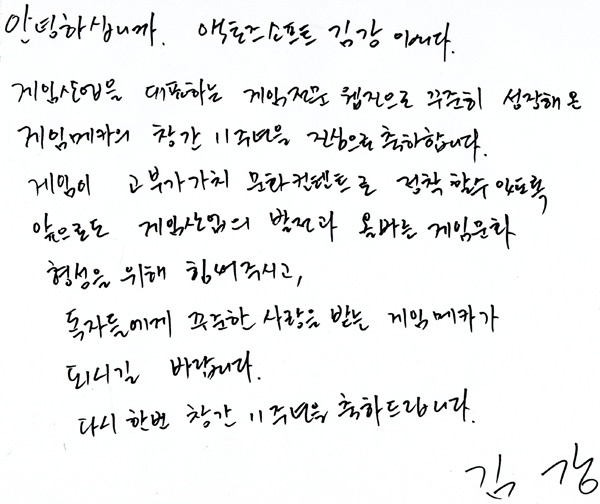 안녕하십니까. 액토즈소프트 김강 입니다.
게임산업을 대표하는 게임전문 웹진으로 꾸준히 성장해 온
게임메카의 창간 11주년을 진심으로 축하합니다.
게임이 고부가가치 문화컨텐트로 정착 할수 있도록
앞으로도 게임산업의 발전과 올바른 게임문화
형성을 위해 힘써주시고,
독자들에게 꾸준한 사랑을 받는 게임메카가
되시길 바랍니다.
다시 한번 창간 11주년을 축하드립니다.
김 강